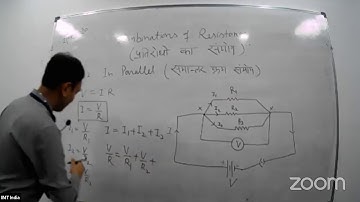 Combinations of Resistors
(प्रतिरोधों का संयोग)
In Parallel (समान्तर क्रम संयोग)
= I R
I = V/R
I₁ = V/R₁
I = I₁ + I₂ + I₃
I₂ = V/R₂
V/R = V/R₁ + V/R₂ +
I₁ R₁
I₂ R₂
I₃ R₃
V
V
zoom
IINT India